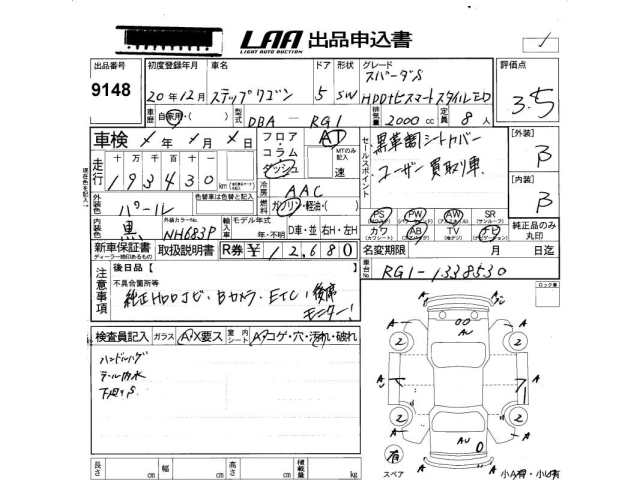 LAA 出品申込書
LIGHT AUTO AUCTION
出品番号 初度登録年月 車名 ドア 形状 グレード 評価点
9148 20年12月 ステップワゴン 5 SW スパーダS
HDDナビスマートスタイルED 3.5
車歴 自家用・( ) 型式 DBA - RG1 排気量 2000 cc 定員 8 人
車検 年 月 日 フロア・コラム・ダッシュ AT MTのみ記入 速
セールスポイント 黒革調シートカバー
ユーザー買取り車
[外装] B
[内装] B
走行 十 万 千 百 十 一
193430 km
冷房 AAC
外装色 パール 色替車は色替と記入 燃料 ガソリン・軽油・( )
内装色 黒 外装カラーNo. NH683P 輸入車 モデル年式 年・不明 D車・並 右H・左H
PS PW AW SR
カワ AB TV ナビ
純正品のみ丸印
新車保証書 取扱説明書 R券 ¥12,680 名変期限 月 日迄
ディーラー捺印あるもの
車台No. RG1-1338530
注意事項 後日品 [ ]
不具合箇所等
純正HDDナビ・Bカメラ・ETC・後席
モニター!
ロック量
検査員記入 ガラス A・X要ス 室内シート A・コゲ・穴・汚れ・破れ
ハンドルハゲ
テール内水
下廻りS
A A
A 2 AU 2 A
A A
A 2 2 A
AU
有
スペア
長さ cm 幅 cm 高さ cm 積載量 kg
小A有・小U有